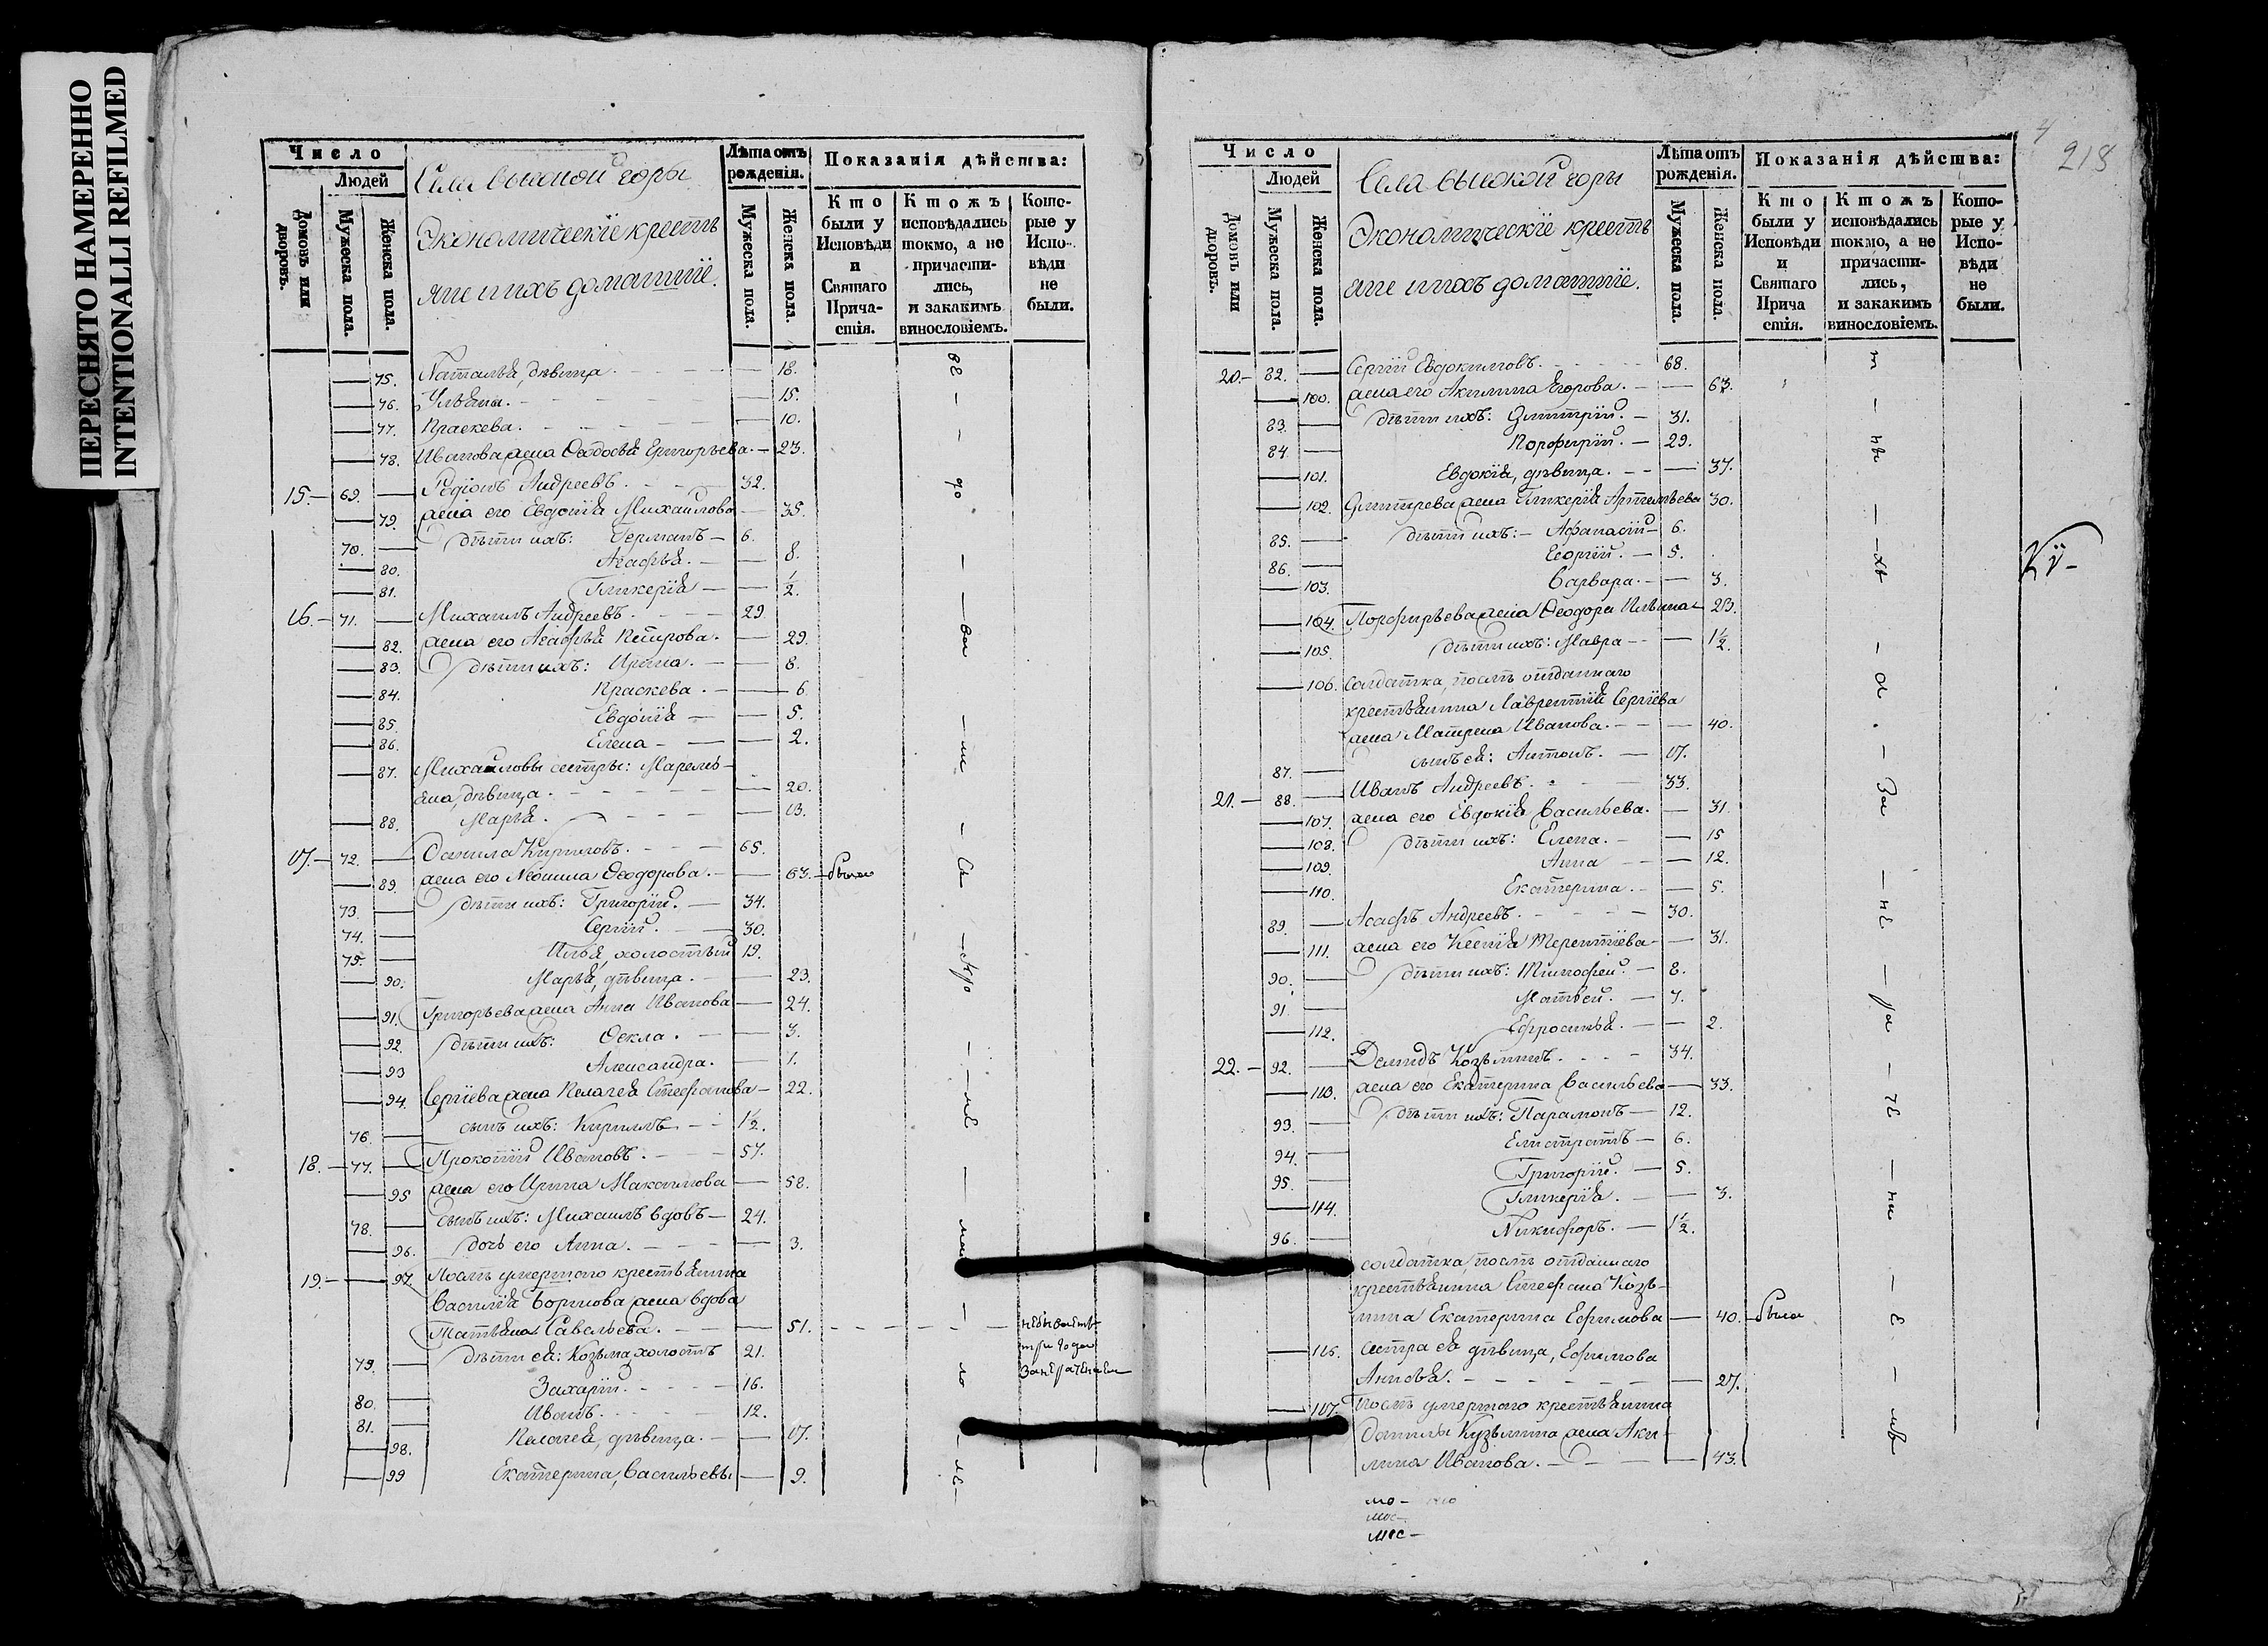 ПЕРЕСНЯТО НАМЕРЕННО
INTENTIONALLI REFILMED
Число
Людей
Домовъ или дворовъ.
Мужеска пола.
Женска пола.
Села высокой горы
Экономическіе крестъ
яне и ихъ домашніе.
Лѣта отъ рожденія.
Мужеска пола.
Женска пола.
Показанія дѣйства:
Кто были у Исповѣди и Святаго Прича-стія.
Ктожъ исповѣдались токмо, а не причасти-лись, и закакимъ винословіемъ.
Кото-рые у Испо-вѣди не были.
75. Наталья, дѣвица 18.
76. Ульяна. 15.
77. Праскева. 10.
78. Иванова жена Феодосья Григорьева. 23.
15. 69. Родіонъ Андреевъ. 32.
79. жена его Евдокія Михайлова 35.
70. дѣти ихъ: Германъ 6.
80. Агафья. 8.
81. Гликерія 1/2.
16. 71. Михаилъ Андреевъ. 29
82. жена его Агафья Петрова. 29.
83. дѣти ихъ: Ирина. 8.
84. Праскева. 6
85. Евдокія 5.
86. Елена 2.
87. Михайловы сестры: Мареми-
яна, дѣвица. 20.
88. Марья. 13.
17. 72. Данила Кириловъ. 65.
89. жена его Неонила Феодорова. 63. была
73. дѣти ихъ: Григорій. 34.
74. Сергій. 30.
75. Илья, холостый 19.
90. Марья, дѣвица. 23.
91. Григорьева жена Анна Иванова 24.
92. дѣти ихъ: Фекла. 3.
93 Александра. 1.
94. Сергіева жена Пелагея Стефанова 22.
76. сынъ ихъ: Кириллъ 1 1/2.
18. 77. Прокопій Ивановъ. 57.
95 жена его Ирина Максимова 58.
78. сынъ ихъ: Михаилъ вдовъ 24.
96. дочь его Анна. 3.
19. 97. Послѣ умершаго крестьянина
Василія Борисова жена вдова
Татьяна Савельева. 51.
три года
79. дѣти ея: Козьма, холостъ 21.
80. Захарій. 16.
81. Иванъ. 12.
98. Пелагея, дѣвица. 17.
99 Екатерина, Васильевы 9.
4
218
Число
Людей
Домовъ или дворовъ.
Мужеска пола.
Женска пола.
Села высокой горы
Экономическіе крестъ
яне и ихъ домашніе.
Лѣта отъ рожденія.
Мужеска пола.
Женска пола.
Показанія дѣйства:
Кто были у Исповѣди и Святаго Прича стія.
Ктожъ исповѣдались токмо, а не причасти-лись, и закакимъ винословіемъ.
Кото-рые у Испо-вѣди не были.
20. 82. Сергій Евдокимовъ. 68.
100. жена его Акилина Егорова. 63.
83. дѣти ихъ: Димитрій. 31.
84. Порфирій. 29.
101. Евдокія, дѣвица. 37.
102. Димитрева жена Гликерія Артемьева 30.
85. дѣти ихъ: Афанасій 6.
86. Георгій. 5.
103. Варвара. 3.
104. Порфирьева жена Феодора Ильина 23.
105. дѣти ихъ: Мавра 1 1/2.
106. Солдатка, послѣ отданнаго
крестьянина Лаврентія Сергіева
жена Матрена Иванова. 40.
87. сынъ ея: Антонъ. 17.
21. 88. Иванъ Андреевъ. 33.
107. жена его Евдокія Васильева. 31.
108. дѣти ихъ: Елена. 15
109. Анна 12.
110. Екатерина. 5.
89. Асафъ Андреевъ. 30.
111. жена его Ксенія Терентіева 31.
90. дѣти ихъ: Тимофей. 8.
91. Матвей. 7.
112. Ефросинья. 2.
22. 92. Демидъ Козьминъ. 34.
113. жена его Екатерина Васильева 33.
93. дѣти ихъ: Парамонъ 12.
94. Елистратъ 6.
95. Григорій. 5.
114. Гликерія. 3.
96. Никифоръ. 1 1/2.
солдатка, послѣ отданнаго
крестьянина Стефана Козь-
мина Екатерина Ефимова 40. была
116. сестра ея дѣвица, Ефимова
27.
117. Послѣ умершаго крестьянина
Данилы Кузьмина жена Аки-
лина Иванова. 43.